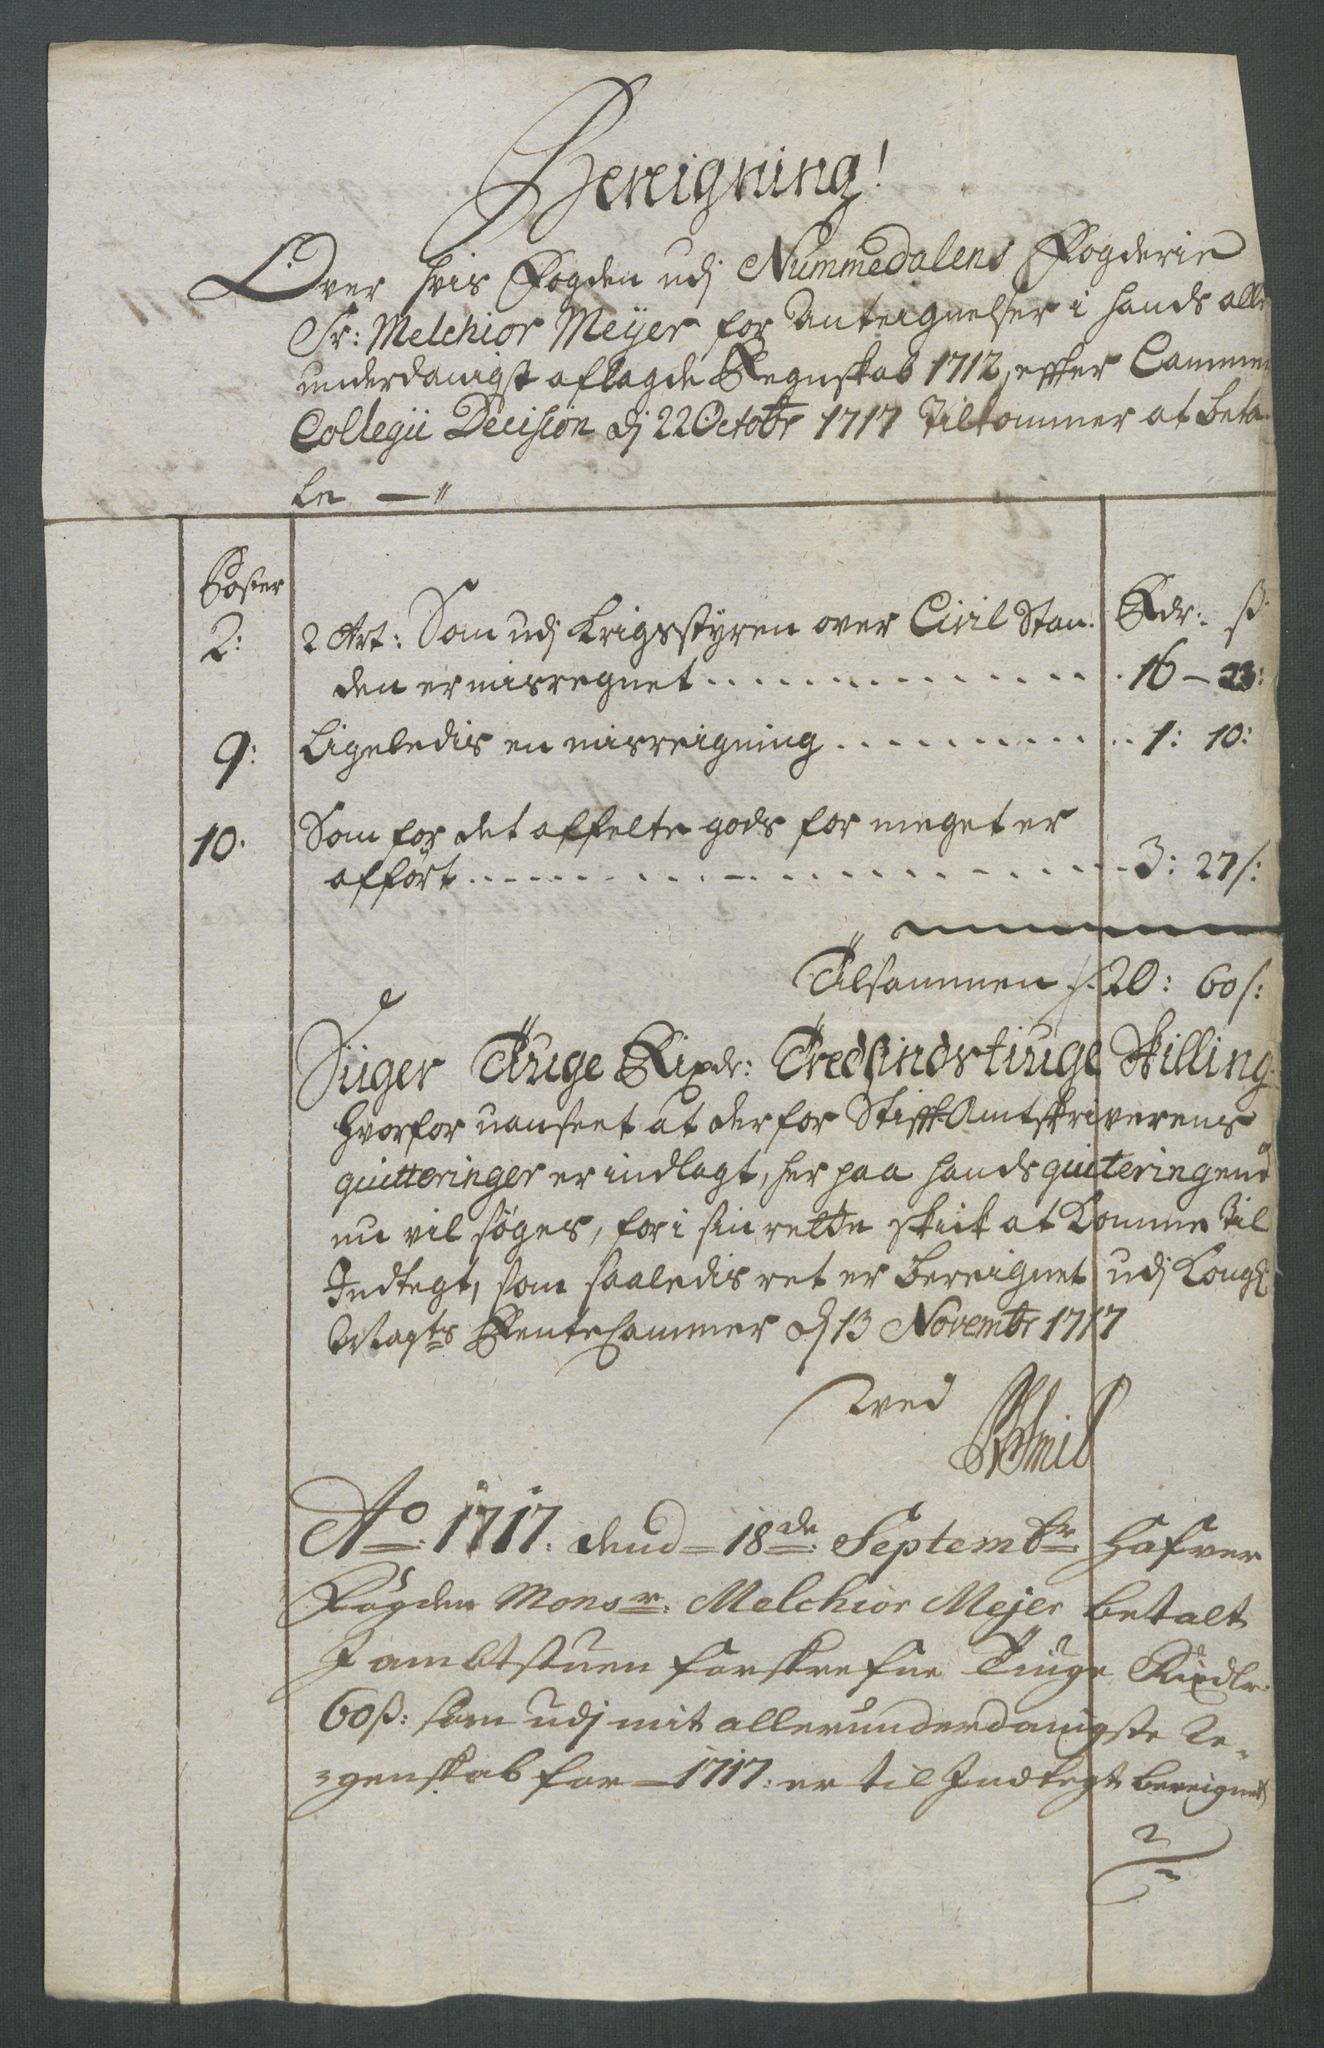 Bereigning!
Over hvis Fogden udj Nummedalens Fogderie
Sr: Melchior Meyer for Anteignelser i hands aller
underdanigst aflagde Regnskab 1712, effter Cammer
Collegii Decision dj 22 Octobr 1717 tilkommer at beta-
le —"
Poster
2: 2 Art: Som udj Krigsstyren over Civil Stan- Rdr: ß:
den er misregnet . . . . . . . . . . . . . 16 – 23:
9: Ligeledis en misreigning . . . . . . . . . . 1: 10:
10. Som for det affelte gods for meget er
afført . . . . . . . . . . . . . . . . . 3: 27ß:
Tilsammen 20: 60ß:
Siger Tiuge Rixdr: Tredsindstiuge Skilling
hvorfor uanseet at der for Stifft Amtskriverens
quitteringer er indlagt, her paa hands quitering end
nu vil søges, for i sin rette skick at komme til
Indtegt, som saaledis ret er bereignet udj Kongl
Mayts RenteCammer dj 13 Novembr 1717
Ved
Ao. 1717. dend 18de Septembr hafver
Fogden Monsr. Melchior Mejer betalt
J ambtstuen forskrefne Tiuge Rixdlr
60ß: som udj mit allerunderdanigste Re-
-genskab for 1717: er til Indtegt bereignet